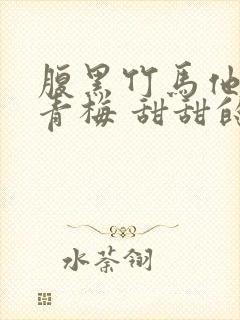 腹黑竹馬他
青梅 甜甜的
水荼翎